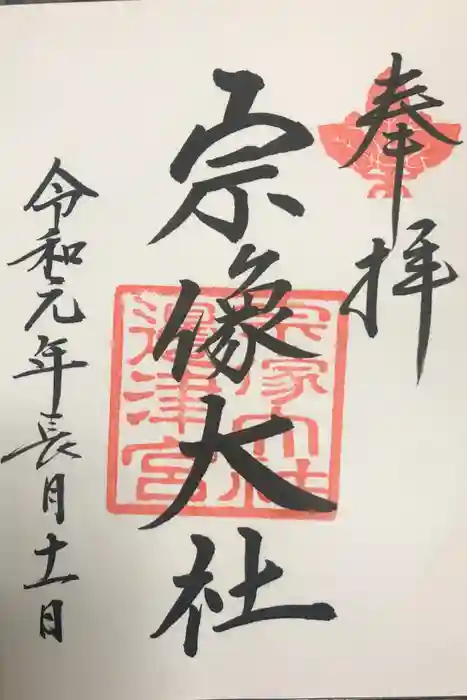 奉拝
宗像大社
宗像大社
邊津宮
令和元年長月十一日